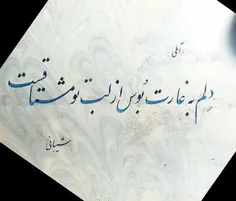 اهلی
دلم به غارت بوس از لب تو مشتاقست
شیبانی